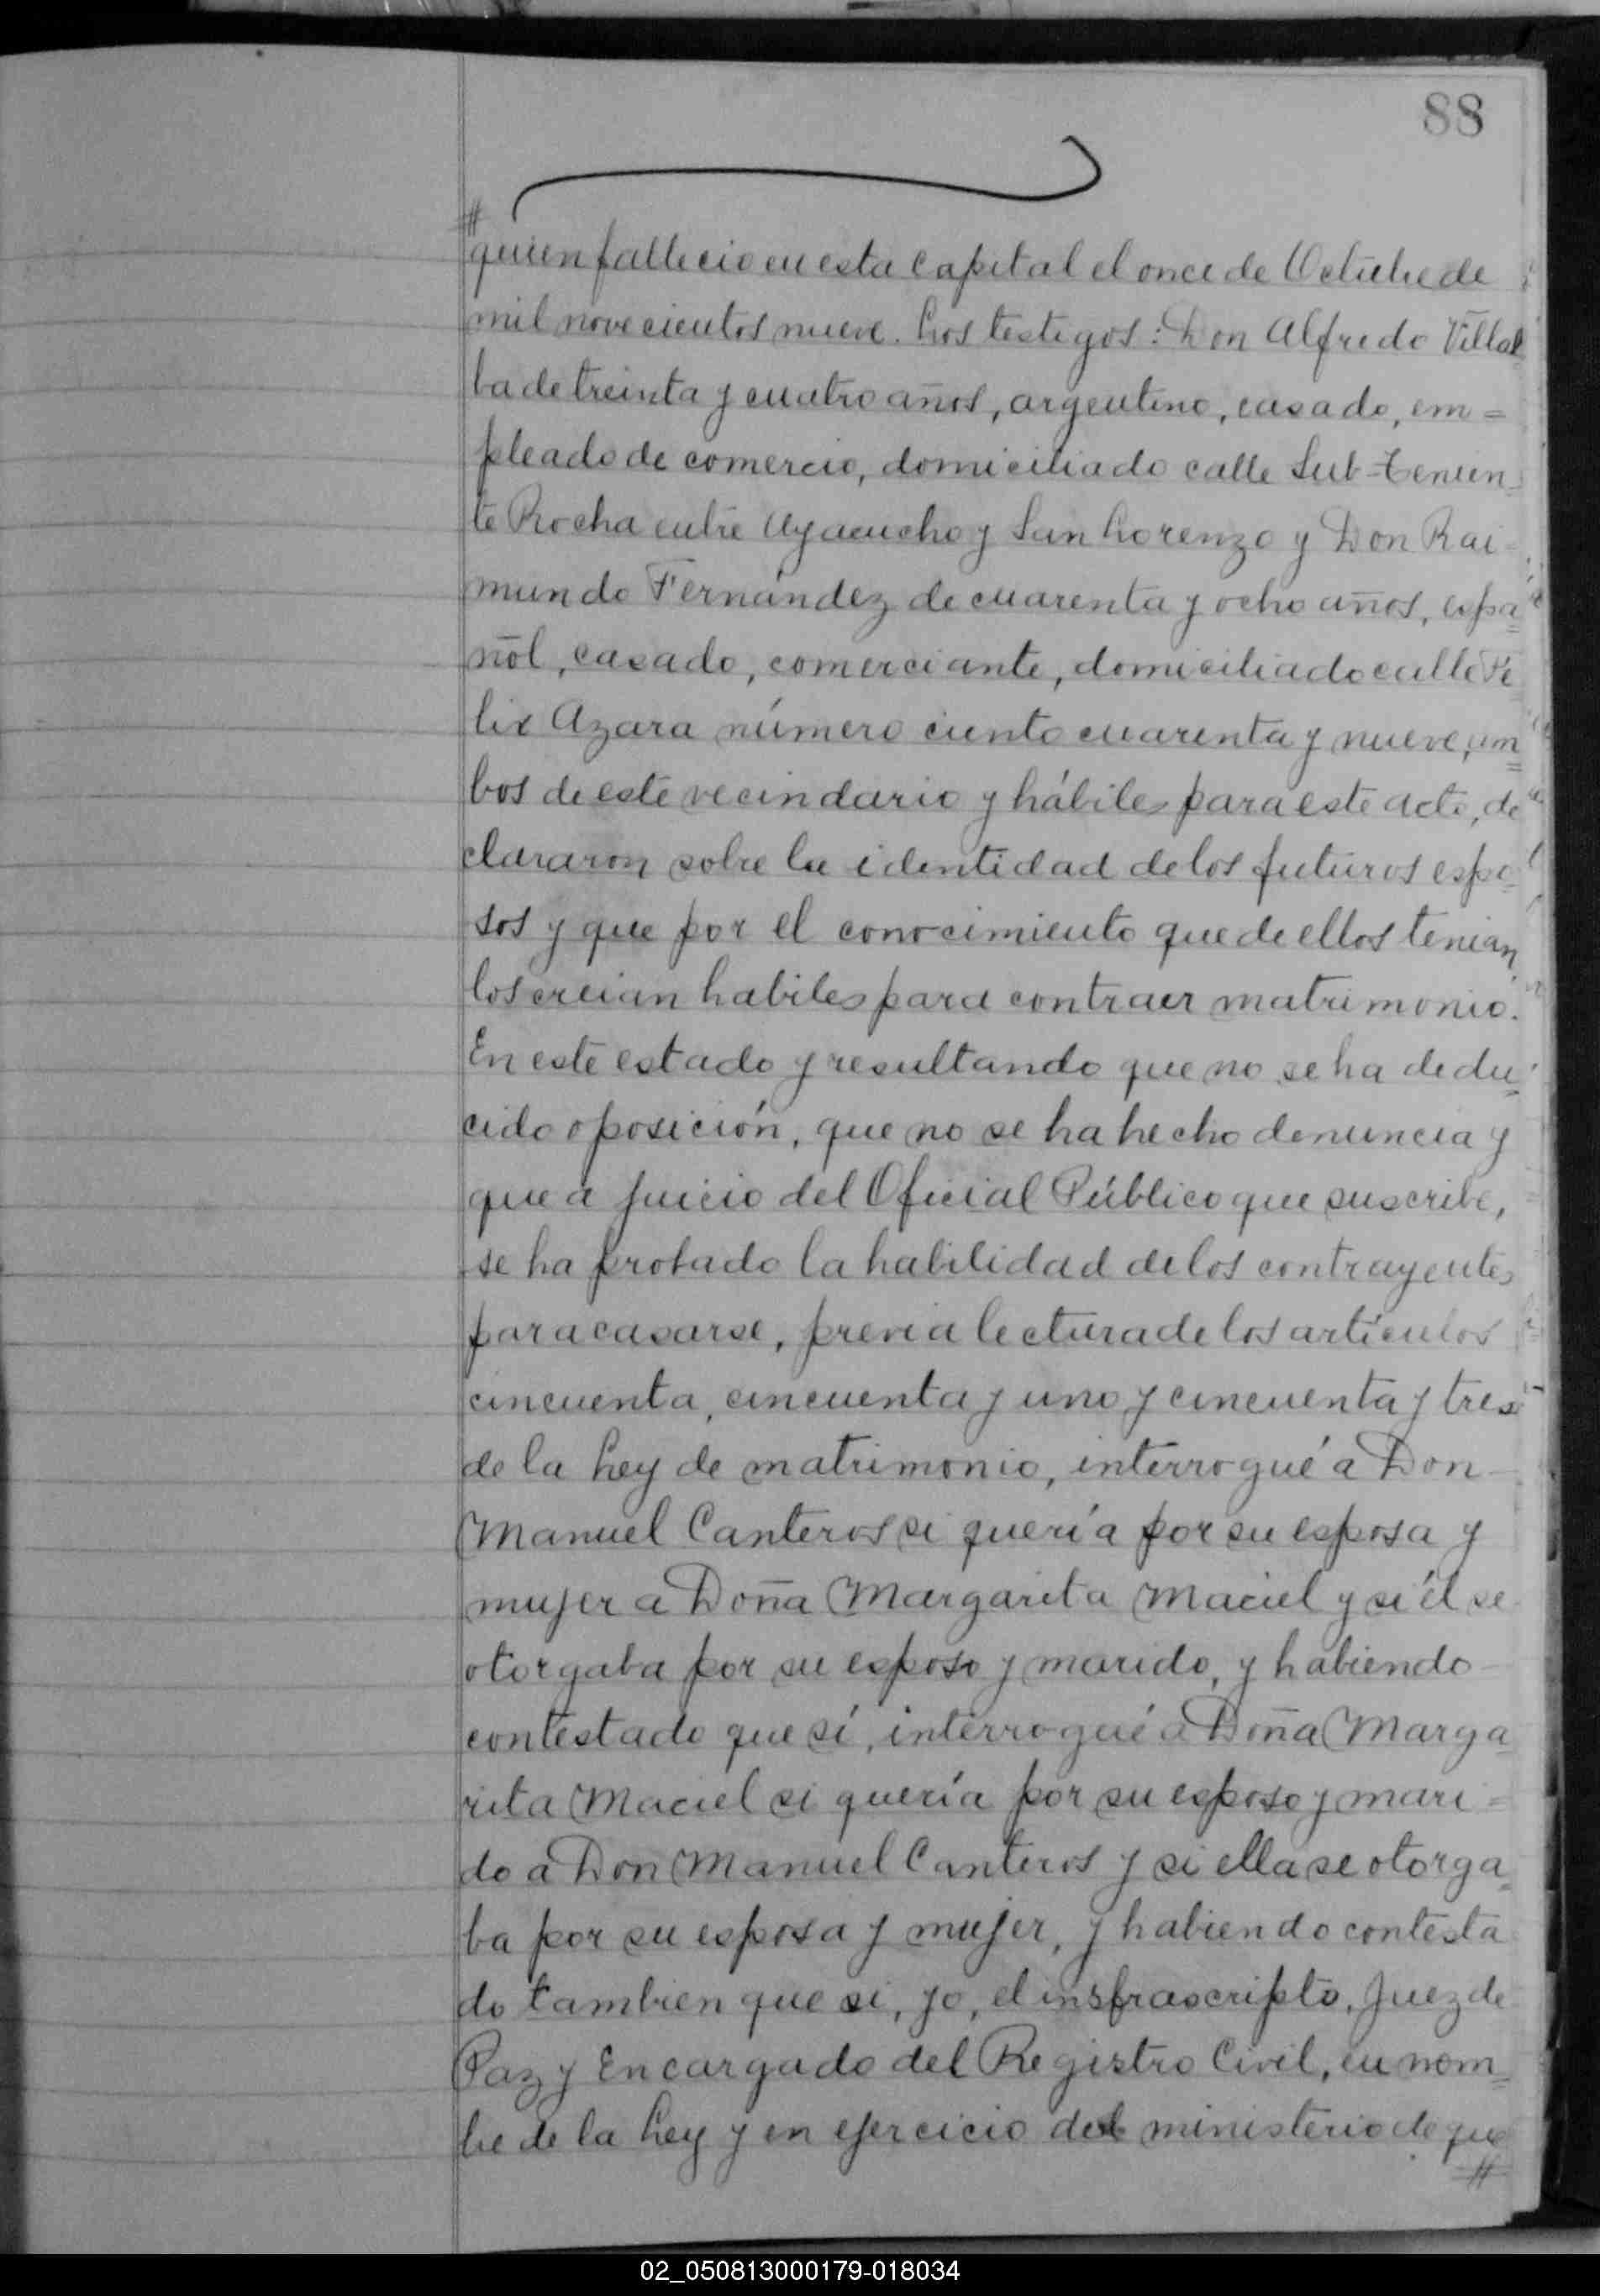 88
#
quien fallecio en esta Capital el once de Octubre de
mil novecientos nueve. Los testigos: Don Alfredo Villal
ba de treinta y cuatro años, argentino, casado, em=
pleado de comercio, domiciliado calle Sub-Tenien=
te Rocha entre Ayacucho y San Lorenzo y Don Rai=
mundo Fernández de cuarenta y ocho años, espa=
ñol, casado, comerciante, domiciliado calle Fe
lix Azara número ciento cuarenta y nueve, am=
bos de este vecindario y hábiles para este acto, de
clararon sobre la identidad de los futuros espo=
sos y que por el conocimiento que de ellos tenian
los creian habiles para contraer matrimonio.
En este estado y resultando que no se ha dedu=
cido oposición, que no se ha hecho denuncia y
que a juicio del Oficial Público que suscribe,
se ha probado la habilidad de los contrayentes
para casarse, previa lectura de los artículos
cincuenta, cincuenta y uno y cincuenta y tres
de la Ley de matrimonio, interrogué a Don
Manuel Canteros si quería por su esposa y
mujer a Doña Margarita Maciel y si él se
otorgaba por su esposo y marido, y habiendo
contestado que sí, interrogué a Doña Marga=
rita Maciel si quería por su esposo y mari=
do a Don Manuel Canteros y si ella se otorga=
ba por su esposa y mujer, y habiendo contesta
do tambien que si, yo, el insfrascripto, Juez de
Paz y Encargado del Registro Civil, en nom=
bre de la Ley y en ejercicio del ministerio de que
#
02_050813000179-018034